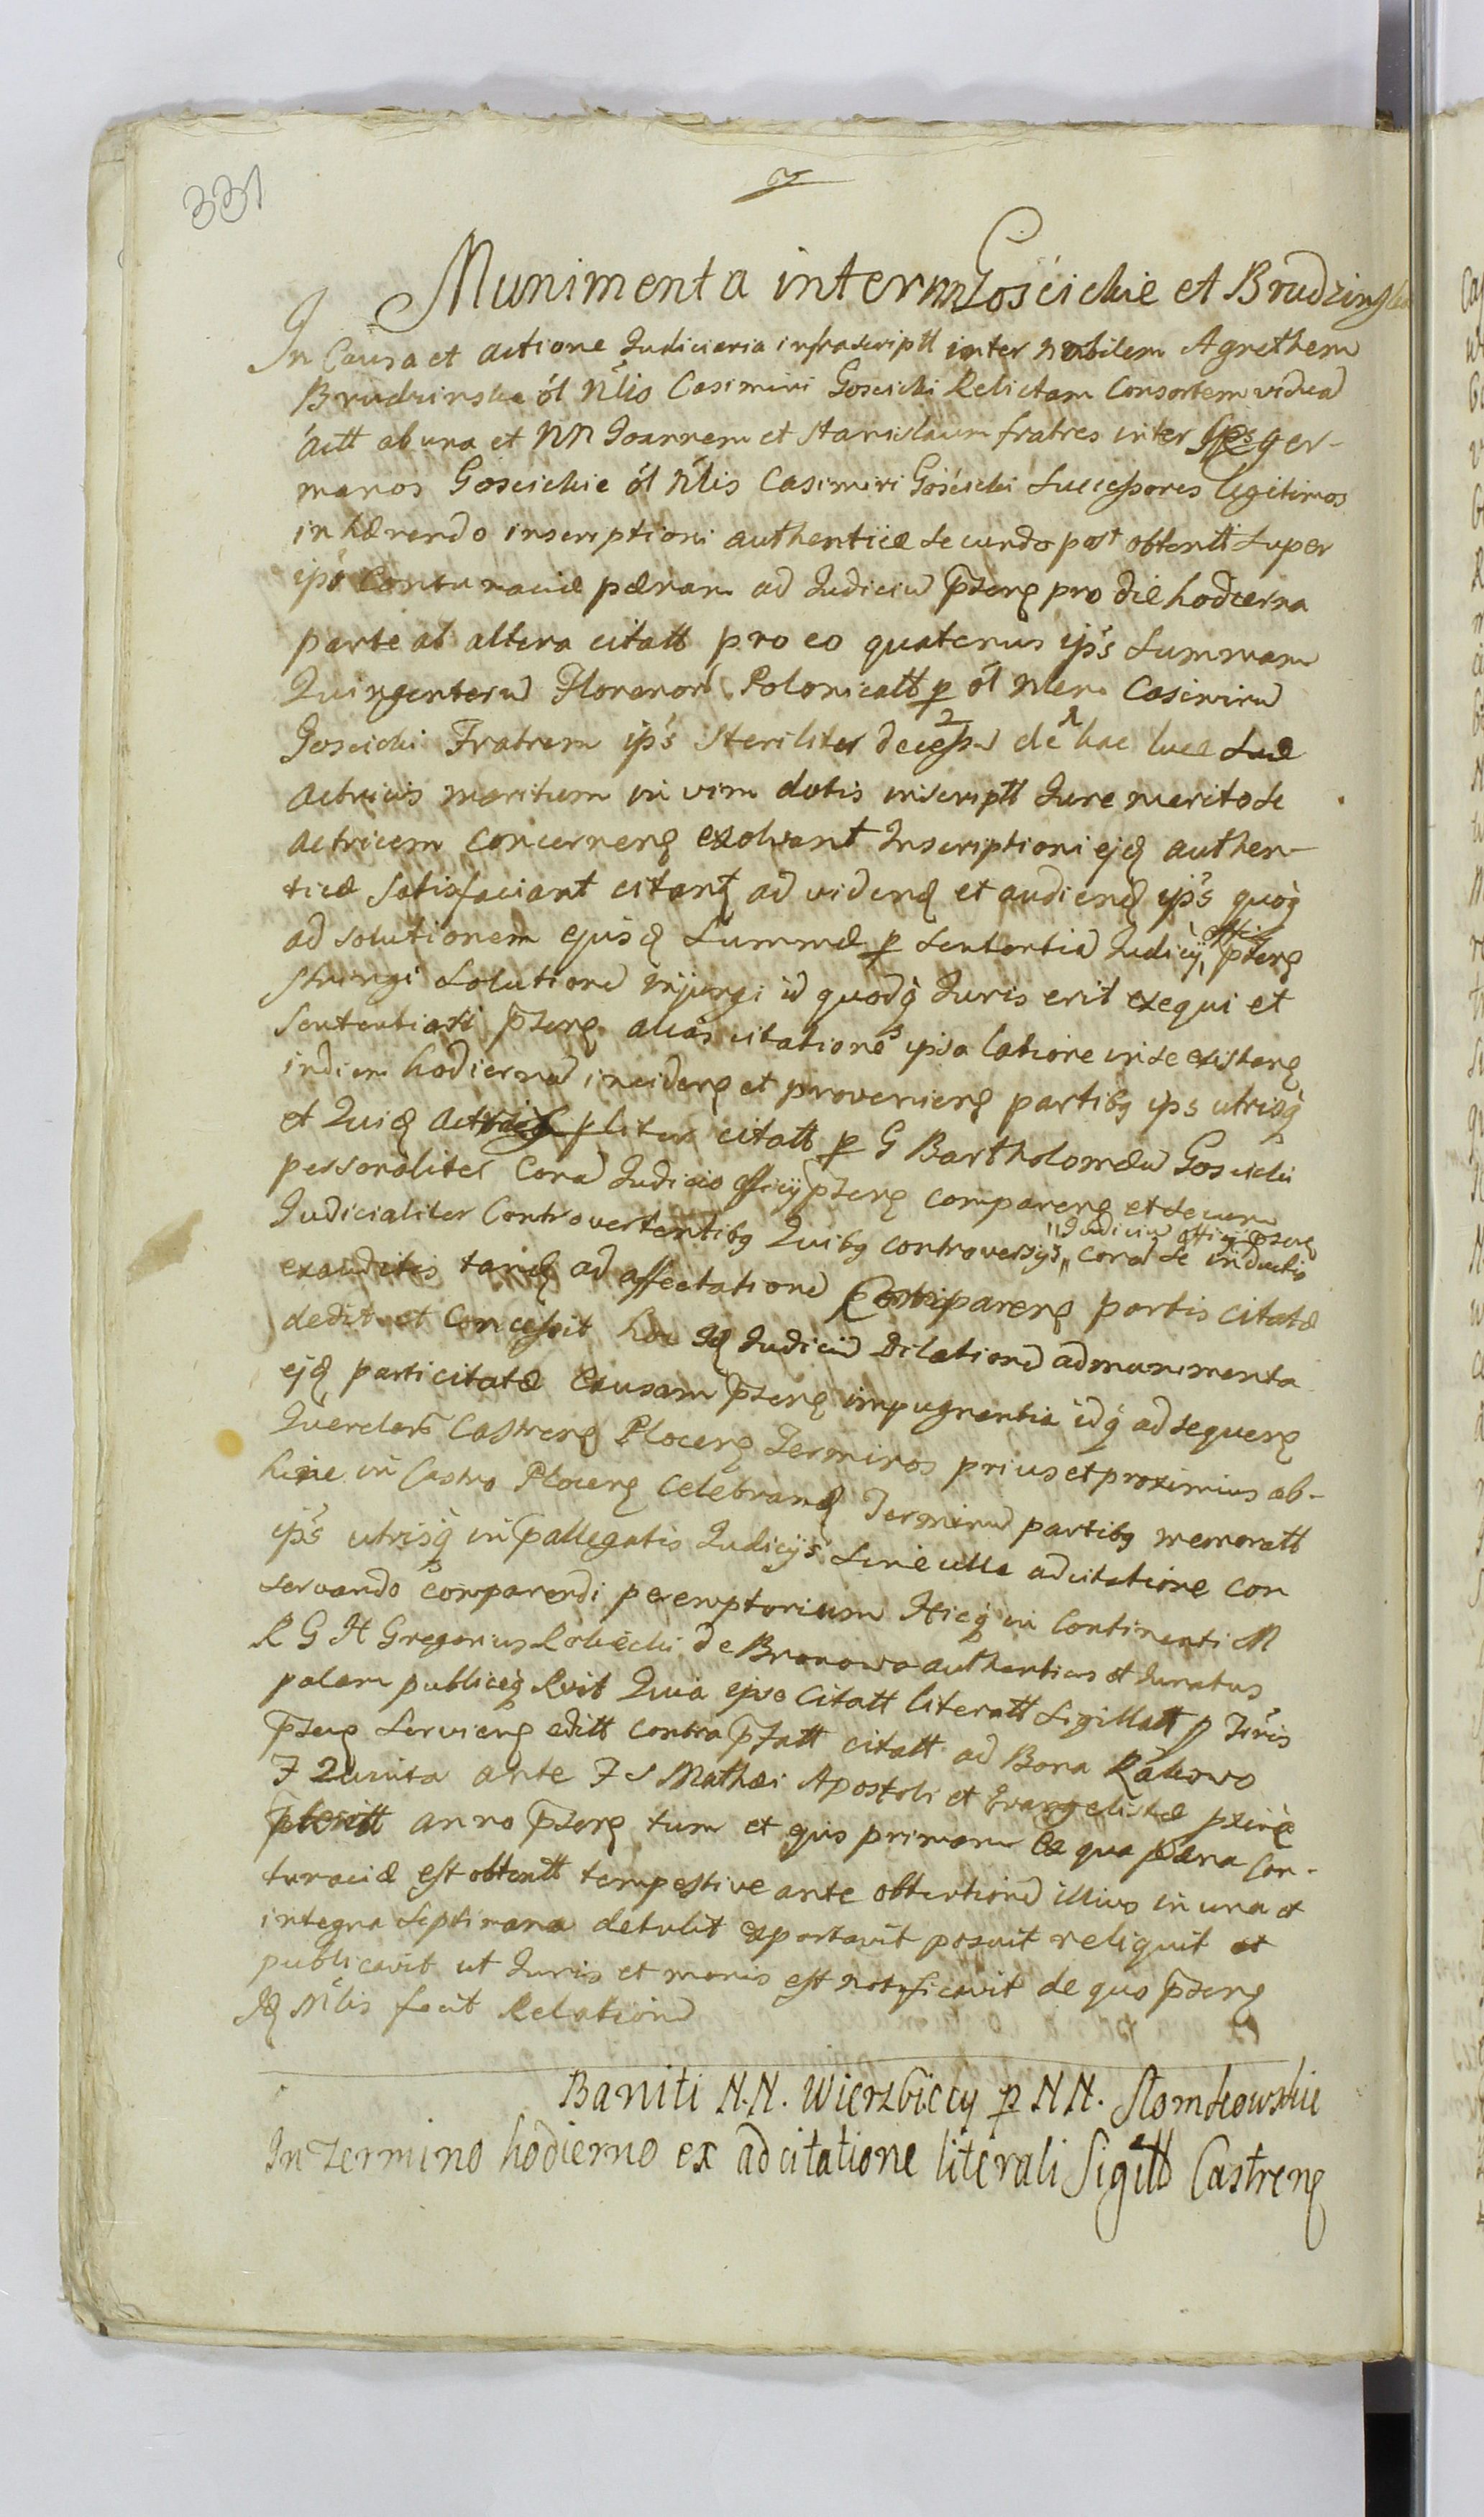 331
Munimenta inter nn Gościckie et Brudzinska
In Causa et actione Judiciaria infrascriptt inter nobilem Agnethem
Brudzinska ol nlis Casimiri Goscicki Relictam Consortem vidua
actt ab una et nn Joannem et Stanislaum fratres inter se ger-
manos Goscickie ol nlis Casimiri Gościcki Successores legitimos
inhærendo inscriptioni authenticæ secundo post obtentt super
ips contumaciæ pænam ad Judiciu pnteng pro die hodierna
parte ab altera citatt pro eo quatenus ips Summam
Quingenteru Florenor Polonicatt p ol nlem Casimiru
Goscicki Fratrem ips steriliter decess de hac luce suæ
actricis maritum in vim dotis inscriptt Jure merito se
actricem concernens exolvant Inscriptioni ejq authen-
ticæ satisfaciant citant ad videnq et audienq ips quoq
ad solutionem ejusq Summæ p sententia Judicij offici pnteng
stringi Solutione injungi id quodq Juris erit exequi et
sententiari pnteng alias citatione ipsa latiore in se existeng
in diem hodierna incideng et provenieng partibq ips utrisq
et Quiq citatt p G Bartholomæu Goscicki
personaliter Cora Judicio officij pnteng compareng et secum
Judicialiter Controvertentibq Quibq controversijs Judiciu officij pnteng cora se inductis
exauditis tanq ad affectatione Compareng partis citatæ
dedit et Concessit hoc Idq Judiciu Dilatione ad munimenta
ejq parti citatæ Causam pnteng impugnantia idq ad sequeng
Querelar Castreng Ploceng Terminos prius et proximius ab-
hinc in Castro Ploceng Celebranq Terminu partibq memoratt
ips utrisq in pallegatis Judicijs sine ulla adcitatione con
servando comparendi peremptorium Hicq in Continenti M
R G H Gregorius Rokicki de Bronowo authenticus et Juratus
palam publiceq Rvit Quia ipse Citatt literatt Sigillatt p Tmis
pnteng servieng editt contra pfatt citatt ad Bona Rakowo
F Quinta ante F S Mathæi Apostoli et Evangelistæ pxime
pteritt anno pnteng tum et ejus primam Ex qua pæna Con-
tumaciæ est obtentt tempestive ante obtentione illius in una et
integra Septimana detulit exportavit posuit reliquit et
publicavit ut Juris et moris est notificavit de quo pnteng
Idq Mlis fecit Relatione
Baniti N.N. Wierzbiccy p N N. Słomkowskie
In Termino hodierno ex adcitatione literali Sigilld Castreng